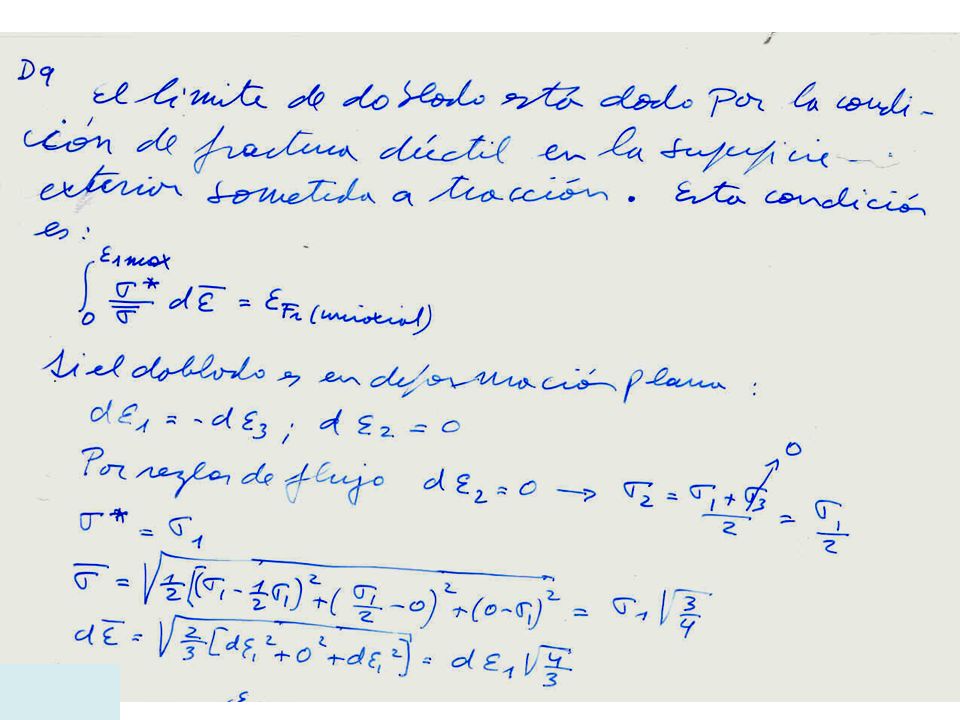 D9
El límite de doblado está dado por la condi-
ción de fractura dúctil en la superficie
exterior sometida a tracción. Esta condición
es:
∫₀^ε1max σ*/σ̅ dε̅ = εFr (uniaxial)
Si el doblado es en deformación plana :
dε₁ = - dε₃ ; dε₂ = 0
Por reglas de flujo dε₂ = 0 → σ₂ = (σ₁ + σ₃)/2 = σ₁/2
0
σ* = σ₁
σ̅ = √(1/2 [(σ₁ - 1/2 σ₁)² + (σ₁/2 - 0)² + (0 - σ₁)²] = σ₁ √(3/4)
dε̅ = √(2/3 [dε₁² + 0² + dε₁²]) = dε₁ √(4/3)